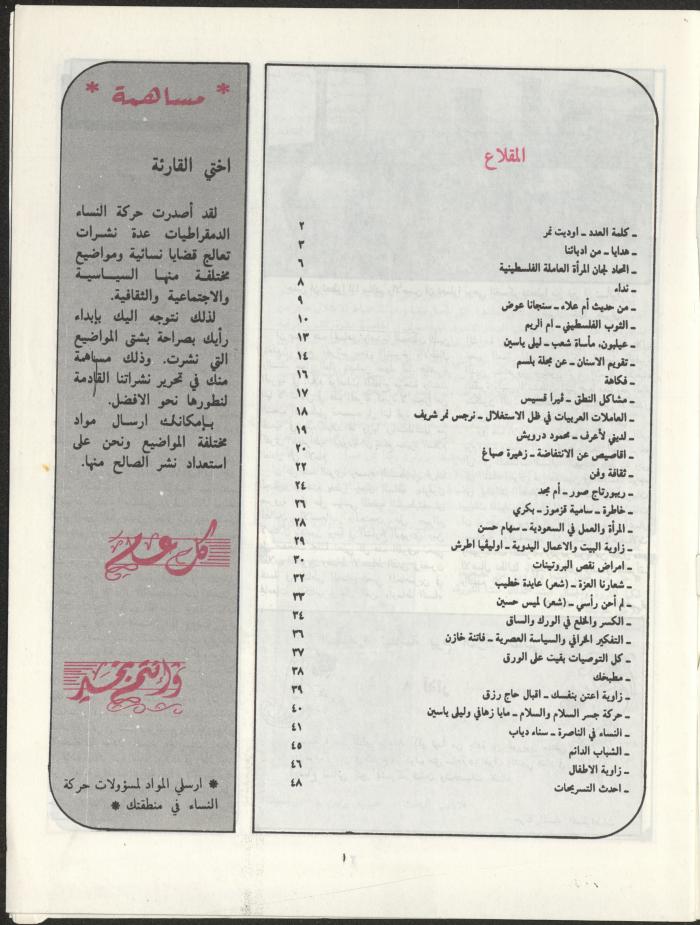 المقلاع
ـ كلمة العدد ـ اوديت نمر ٢
ـ هدايا ـ من ادباتنا ٣
ـ اتحاد لجان المرأة العاملة الفلسطينية ٦
ـ نداء ٨
ـ من حديث أم علاء ـ سنجانا عوض ٩
ـ الثوب الفلسطيني ـ ام الريم ١٠
ـ عيلبون، مأساة شعب ـ ليلى ياسين ١٣
ـ تقويم الاسنان ـ عن مجلة بلسم ١٤
ـ فكاهة ١٦
ـ مشاكل النطق ـ ڤيرا قسيس ١٧
ـ العاملات العربيات في ظل الاستغلال ـ نرجس نمر شريف ١٨
ـ لديني لأعرف ـ محمود درويش ١٩
ـ اقاصيص عن الانتفاضة ـ زهيرة صباغ ٢٠
ـ ثقافة وفن ٢٢
ـ ريبورتاج صور ـ أم مجد ٢٤
ـ خاطرة ـ سامية قزموز ـ بكري ٢٦
ـ المرأة والعمل في السعودية ـ سهام حسن ٢٨
ـ زاوية البيت والاعمال اليدوية ـ اوليڤيا اطرش ٢٩
ـ امراض نقص البروتينات ٣٠
ـ شعارنا العزة ـ (شعر) عايدة خطيب ٣٢
ـ لم أحن رأسي ـ (شعر) لميس حسين ٣٣
ـ الكسر والخلع في الورك والساق ٣٤
ـ التفكير الخرافي والسياسة العصرية ـ فاتنة خازن ٣٦
ـ كل التوصيات بقيت على الورق ٣٧
ـ مطبخك ٣٨
ـ زاوية اعتن بنفسك ـ اقبال حاج رزق ٣٩
ـ حركة جسر السلام والسلام ـ مايا زهافي وليلى ياسين ٤٠
ـ النساء في الناصرة ـ سناء دياب ٤١
ـ الشباب الدائم ٤٥
ـ زاوية الاطفال ٤٦
ـ احدث التسريحات ٤٨
* مساهمة *
اختي القارئة
لقد أصدرت حركة النساء
الدمقراطيات عدة نشرات
تعالج قضايا نسائية ومواضيع
مختلفة منها السياسية
والاجتماعية والثقافية.
لذلك نتوجه اليك بإبداء
رأيك بصراحة بشتى المواضيع
التي نشرت. وذلك مساهمة
منك في تحرير نشراتنا القادمة
لنطورها نحو الافضل.
بإمكانك ارسال مواد
مختلفة المواضيع ونحن على
استعداد نشر الصالح منها.
كل عام
وانتم بخير
* ارسلي المواد لمسؤولات حركة
النساء في منطقتك *
١